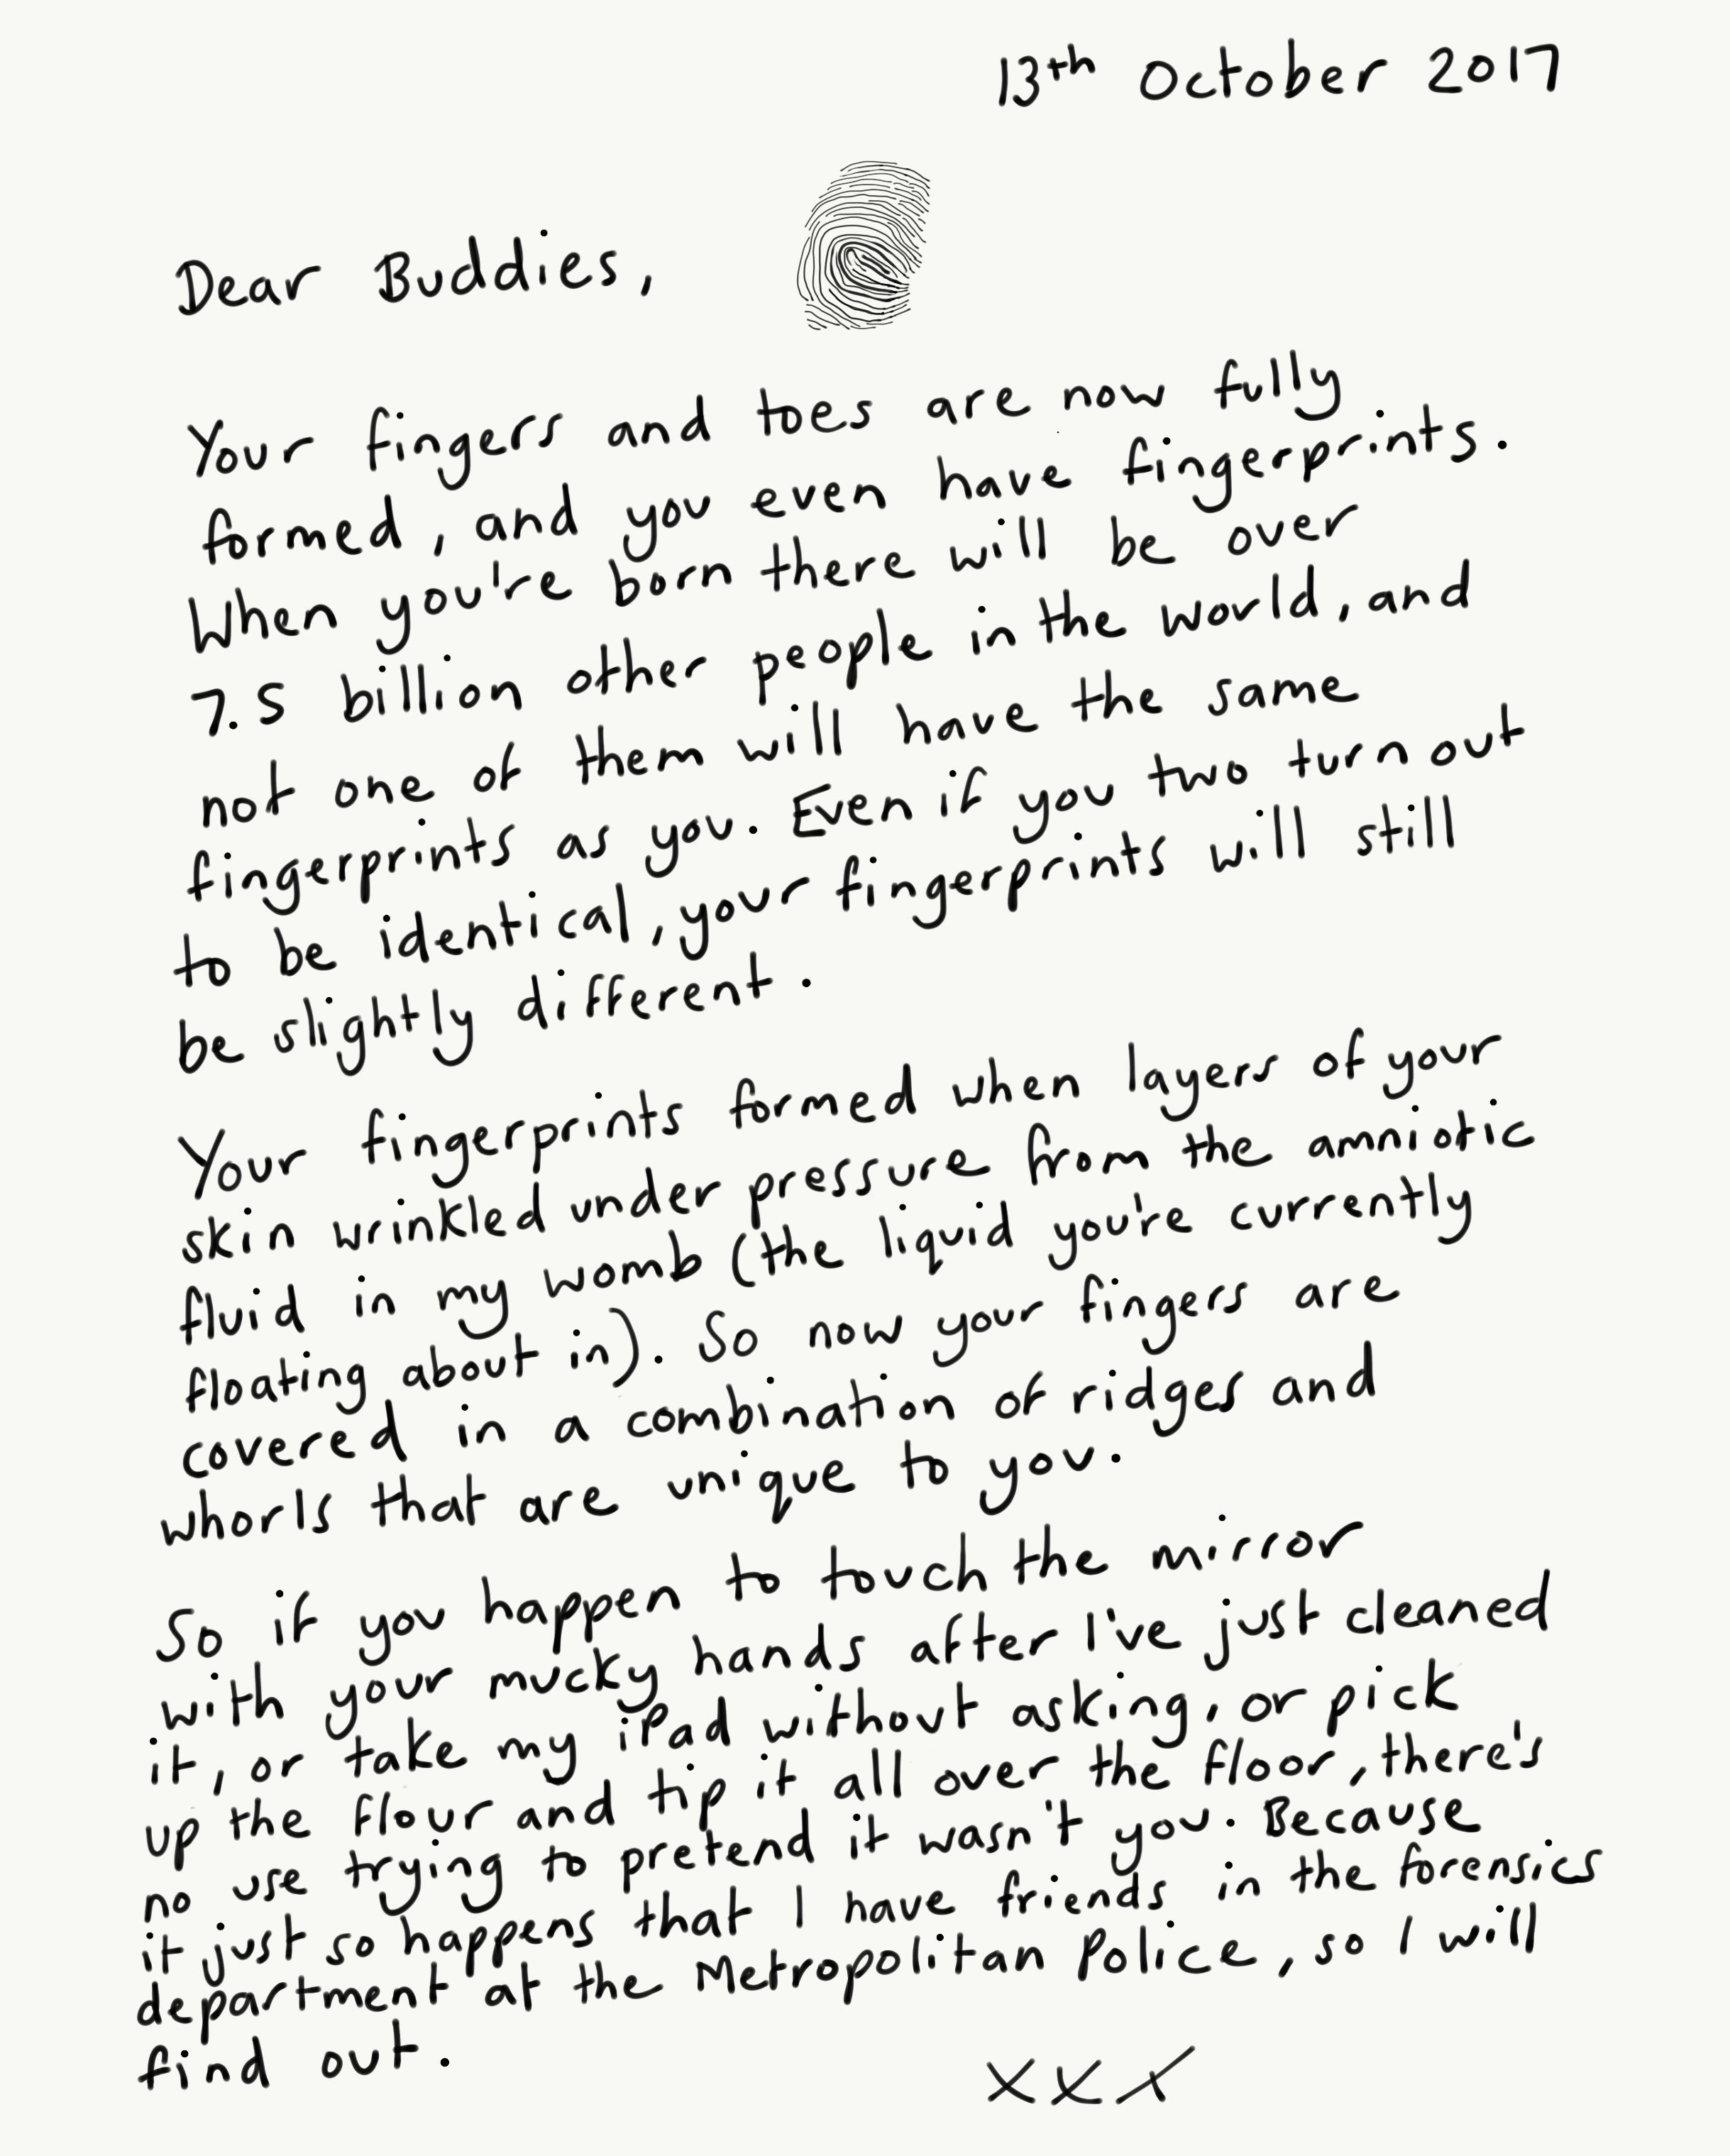 13th October 2017
Dear Buddies,
Your fingers and toes are now fully
formed, and you even have fingerprints.
When you're born there will be over
7.5 billion other people in the world, and
not one of them will have the same
fingerprints as you. Even if you two turn out
to be identical, your fingerprints will still
be slightly different.
Your fingerprints formed when layers of your
skin wrinkled under pressure from the amniotic
fluid in my womb (the liquid you're currently
floating about in). So now your fingers are
covered in a combination of ridges and
whorls that are unique to you.
So if you happen to touch the mirror
with your mucky hands after I've just cleaned
it, or take my iPad without asking, or pick
up the flour and tip it all over the floor, there's
no use trying to pretend it wasn't you. Because
it just so happens that I have friends in the forensics
department at the Metropolitan Police, so I will
find out.
xxx